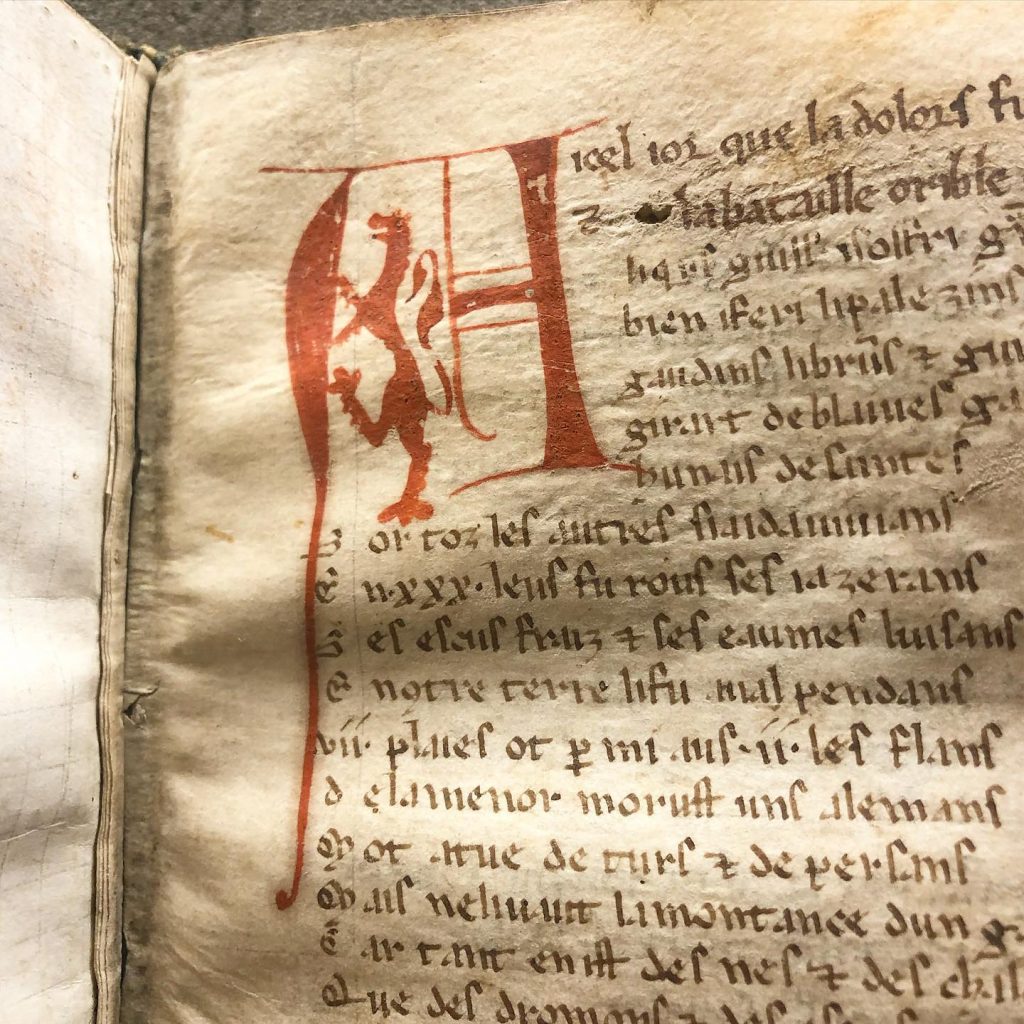 A icel ior que la dolors fu
⁊ la bataille orible
li q̃ns guill' isosfri
bien iferi li pale zins
gaudins li brũs ⁊
girart de blauies
hunaus de saintes
S or toz les autres si aida uiuians
E n .xxx. leus fu rous ses iazerans
S es escus fraiz ⁊ ses eaumes luisans
E n otre terre li fu mal pendans
vii. plaies ot ꝑ mi aus .ii. les flans
d ela menor morust uns alemans
M ot a tue de turs ⁊ de persans
M ais neli uaut la montance dun
C ar tant en ist des nes ⁊ des
Q ue des dromons ⁊ des